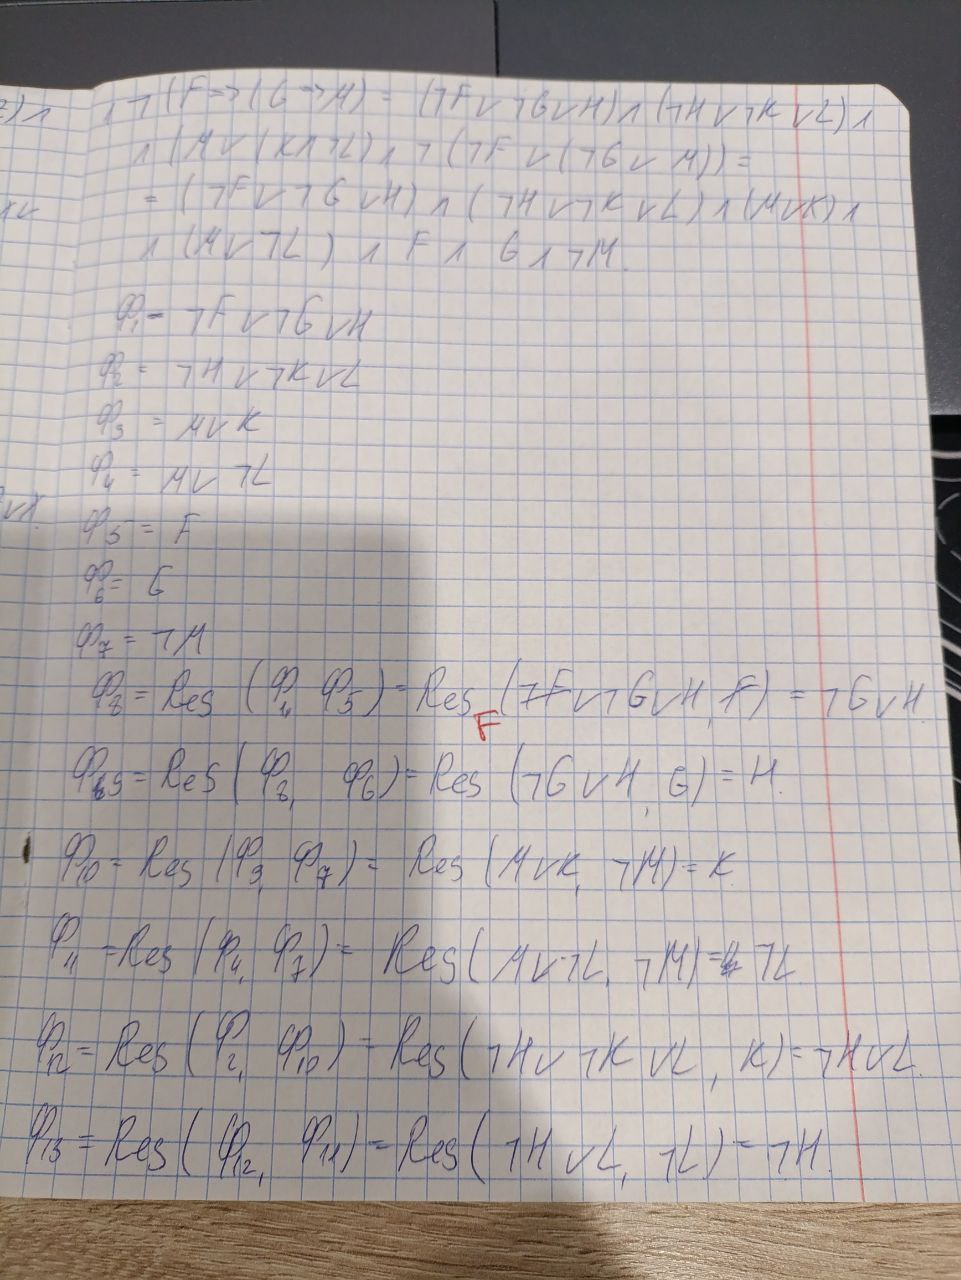 ∧ ¬(F→(G→M) = (¬F∨¬G∨H)∧(¬H∨¬K∨L)∧
∧ (M∨(K∧¬L)∧¬(¬F∨(¬G∨M)) =
= (¬F∨¬G∨H)∧(¬H∨¬K∨L)∧(M∨K)∧
∧ (M∨¬L) ∧ F ∧ G ∧ ¬M.
Φ1 = ¬F∨¬G∨H
Φ2 = ¬H∨¬K∨L
Φ3 = M∨K
Φ4 = M∨¬L
Φ5 = F
Φ6 = G
Φ7 = ¬M
Φ8 = Res (Φ1, Φ5) = Res F (¬F∨¬G∨H, F) = ¬G∨H
Φ9 = Res (Φ8, Φ6) = Res (¬G∨H, G) = H.
Φ10 = Res (Φ3, Φ7) = Res (M∨K, ¬M) = K.
Φ11 = Res (Φ4, Φ7) = Res (M∨¬L, ¬M) = ¬L
Φ12 = Res (Φ2, Φ10) = Res (¬H∨¬K∨L, K) = ¬H∨L.
Φ13 = Res (Φ12, Φ11) = Res (¬H∨L, ¬L) = ¬H.